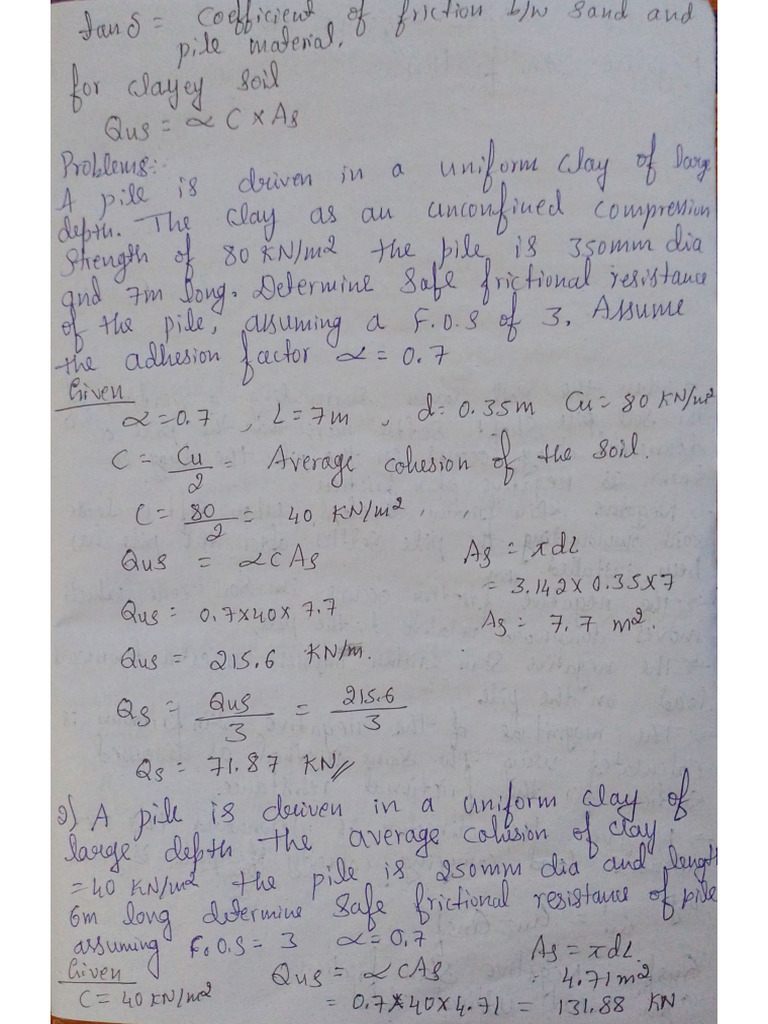 tan δ = Coefficient of friction b/w sand and
pile material.
for clayey soil
Qus = α C x As
Problems:-
A pile is driven in a uniform clay of large
depth. The clay as an unconfined compression
strength of 80 KN/m2 the pile is 350mm dia
and 7m long. Determine safe frictional resistance
of the pile, assuming a F.O.S of 3. Assume
the adhesion factor α = 0.7
Given
α = 0.7 , L = 7m , d = 0.35m Cu = 80 KN/m²
C = Cu/2 = Average cohesion of the soil.
C = 80/2 = 40 KN/m²
Qus = α C As As = πdL
= 3.142 x 0.35 x 7
Qus = 0.7 x 40 x 7.7 As = 7.7 m².
Qus = 215.6 KN/m.
Qs = Qus/3 = 215.6/3
Qs = 71.87 KN//
2) A pile is driven in a uniform clay of
large depth the average cohesion of clay
= 40 KN/m2 the pile is 250mm dia and length
6m long determine safe frictional resistance of pile
assuming F.O.S = 3 α = 0.7
Given Qus = α C As As = πdL
= 4.71 m²
C = 40 KN/m² = 0.7 x 40 x 4.71 = 131.88 KN